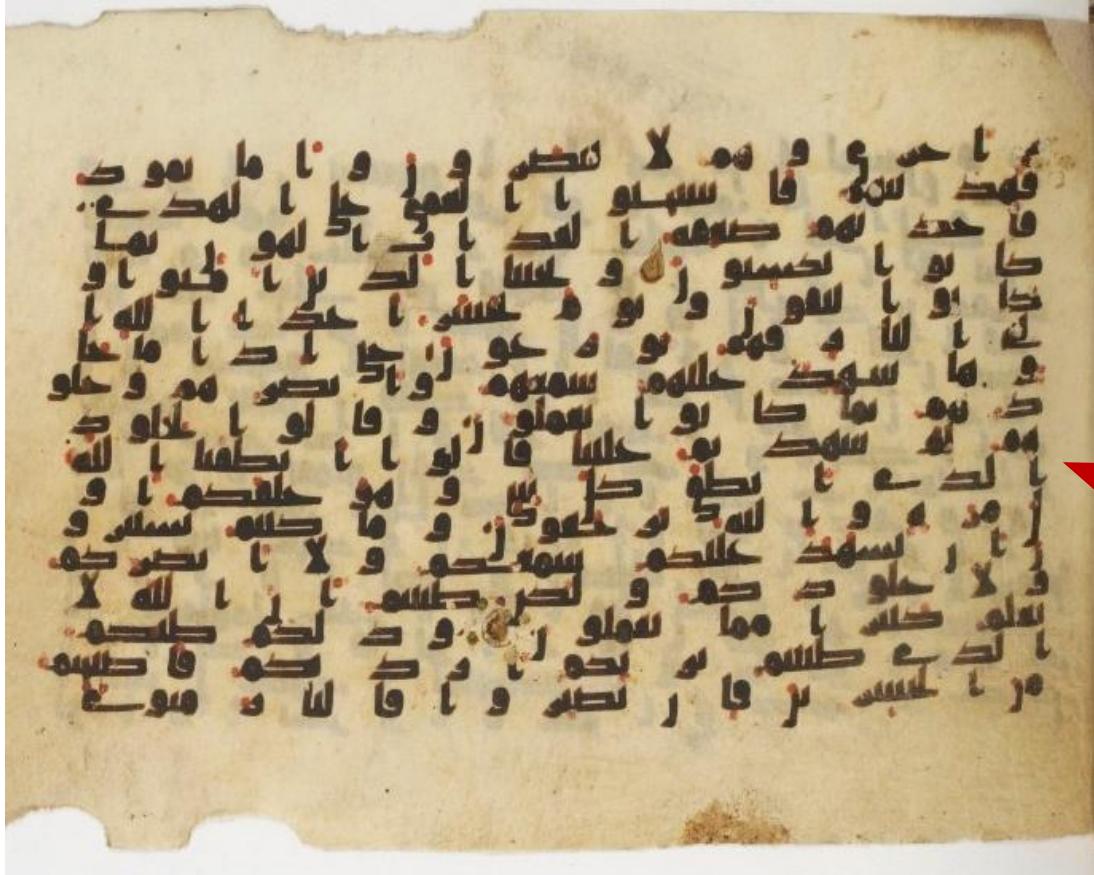 ة اخزى وهم لا ينصرون واما ثمود
فهدينهم فاستحبوا العمى على الهدى
فاخذتهم صعقة العذاب الهون بما
كانوا يكسبون ونجينا الذين امنوا و
كانوا يتقون ويوم يحشر اعدا الله ا
لى النار فهم يوزعون حتى اذا ما جا
و ها شهد عليهم سمعهم وابصرهم وجلو
دهم بما كانوا يعملون وقالوا لجلود
هم لم شهدتم علينا قالوا انطقنا الله
الذى انطق كل شى وهو خلقكم ا و
ل مرة واليه ترجعون وما كنتم تستترو
ن ان يشهد عليكم سمعكم ولا ابصركم
ولا جلودكم ولكن ظننتم ان الله لا
يعلم كثيرا مما تعملون وذلكم ظنكم
الذى ظننتم بربكم ارديكم فاصبحتم
من الخسرين فان يصبروا فالنار مثوى